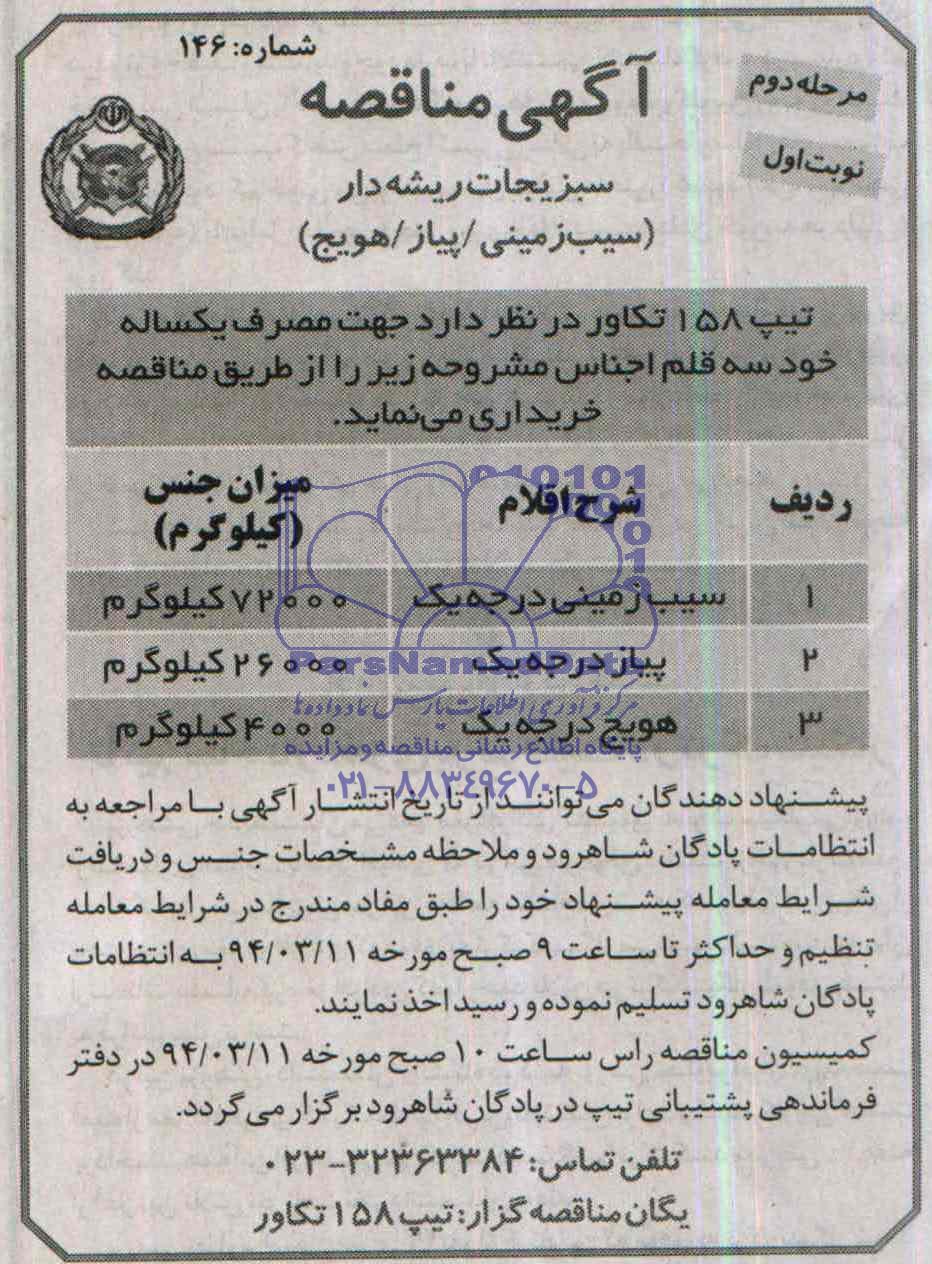 شماره: ۱۴۶
مرحله دوم
نوبت اول
آگهی مناقصه
سبزیجات ریشه دار
(سیب زمینی /پیاز/هویج)
تیپ ۱۵۸ تکاور در نظر دارد جهت مصرف یکساله
خود سه قلم اجناس مشروحه زیر را از طریق مناقصه
خریداری می‌نماید.
ردیف شرح اقلام میزان جنس
(کیلوگرم)
۱ سیب زمینی درجه یک ۷۲۰۰۰ کیلوگرم
۲ پیاز درجه یک ۲۶۰۰۰ کیلوگرم
۳ هویج درجه یک ۴۰۰۰ کیلوگرم
ParsNamadData
مرکز فرآوری اطلاعات پارس نماد داده‌ها
پایگاه اطلاع رسانی مناقصه و مزایده
۰۲۱-۸۸۳۴۹۶۷۰-۵
پیشنهاد دهندگان می‌توانند از تاریخ انتشار آگهی با مراجعه به
انتظامات پادگان شاهرود و ملاحظه مشخصات جنس و دریافت
شرایط معامله پیشنهاد خود را طبق مفاد مندرج در شرایط معامله
تنظیم و حداکثر تا ساعت ۹ صبح مورخه ۹۴/۰۳/۱۱ به انتظامات
پادگان شاهرود تسلیم نموده و رسید اخذ نمایند.
کمیسیون مناقصه راس ساعت ۱۰ صبح مورخه ۹۴/۰۳/۱۱ در دفتر
فرماندهی پشتیبانی تیپ در پادگان شاهرود برگزار می گردد.
تلفن تماس: ۳۲۳۶۳۳۸۴-۰۲۳
یگان مناقصه گزار: تیپ ۱۵۸ تکاور